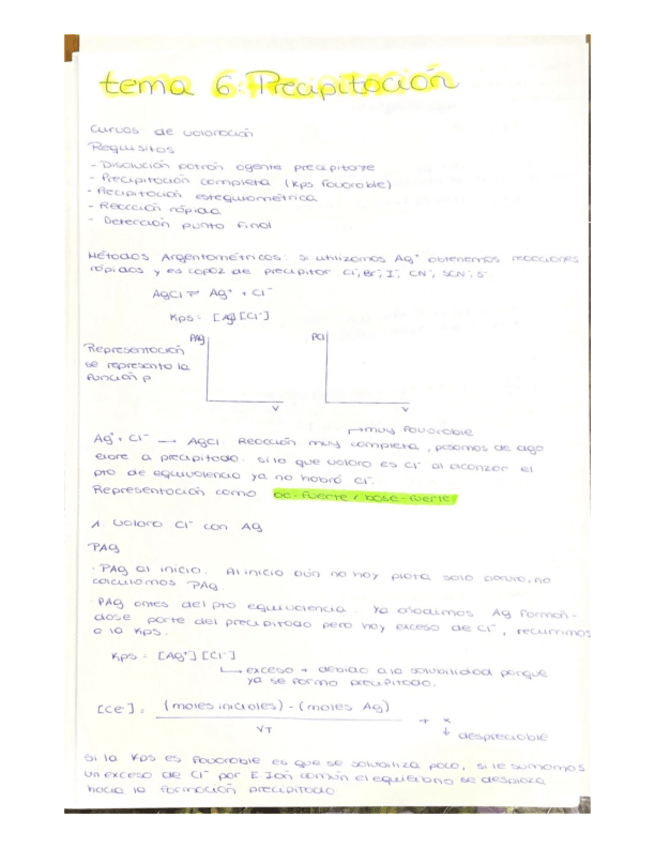 tema 6: Precipitación
Curvas de valoración
Requisitos
- Disolución patrón agente precipitate
- Precipitación completa (Kps favorable)
- Precipitación estequiométrica
- Reacción rápida
- Detección punto final
Métodos Argentométricos: Si utilizamos Ag⁺ obtenemos reacciones
rápidas y es capaz de precipitar Cl⁻, Br⁻, I⁻, CN⁻, SCN⁻, S⁻
AgCl ⇌ Ag⁺ + Cl⁻
Kps = [Ag][Cl⁻]
PAg
V
PCl
V
Representación
se representa la
función p
→ muy favorable
Ag⁺ + Cl⁻ → AgCl. Reacción muy completa, pasamos de algo
claro a precipitado. si lo que valoro es Cl⁻ al alcanzar el
pto de equivalencia ya no habrá Cl⁻.
Representación como ac. fuerte / base-fuerte
1. Valoro Cl⁻ con Ag
PAg
· PAg al inicio. Al inicio aún no hay plata solo cloruro, no
calculamos PAg.
· PAg antes del pto equivalencia. Ya añadimos Ag formán-
dose parte del precipitado pero hay exceso de Cl⁻, recurrimos
a la Kps.
Kps = [Ag⁺][Cl⁻]
→ exceso + debido a la solubilidad porque
ya se formo precipitado.
[Cl⁻] = (moles iniciales) - (moles Ag) / VT + x
↓ despreciable
Si la Kps es favorable es que se solubiliza poco, si le sumamos
un exceso de Cl⁻ por E Ión común el equilibrio se desplaza
hacia la formación precipitado